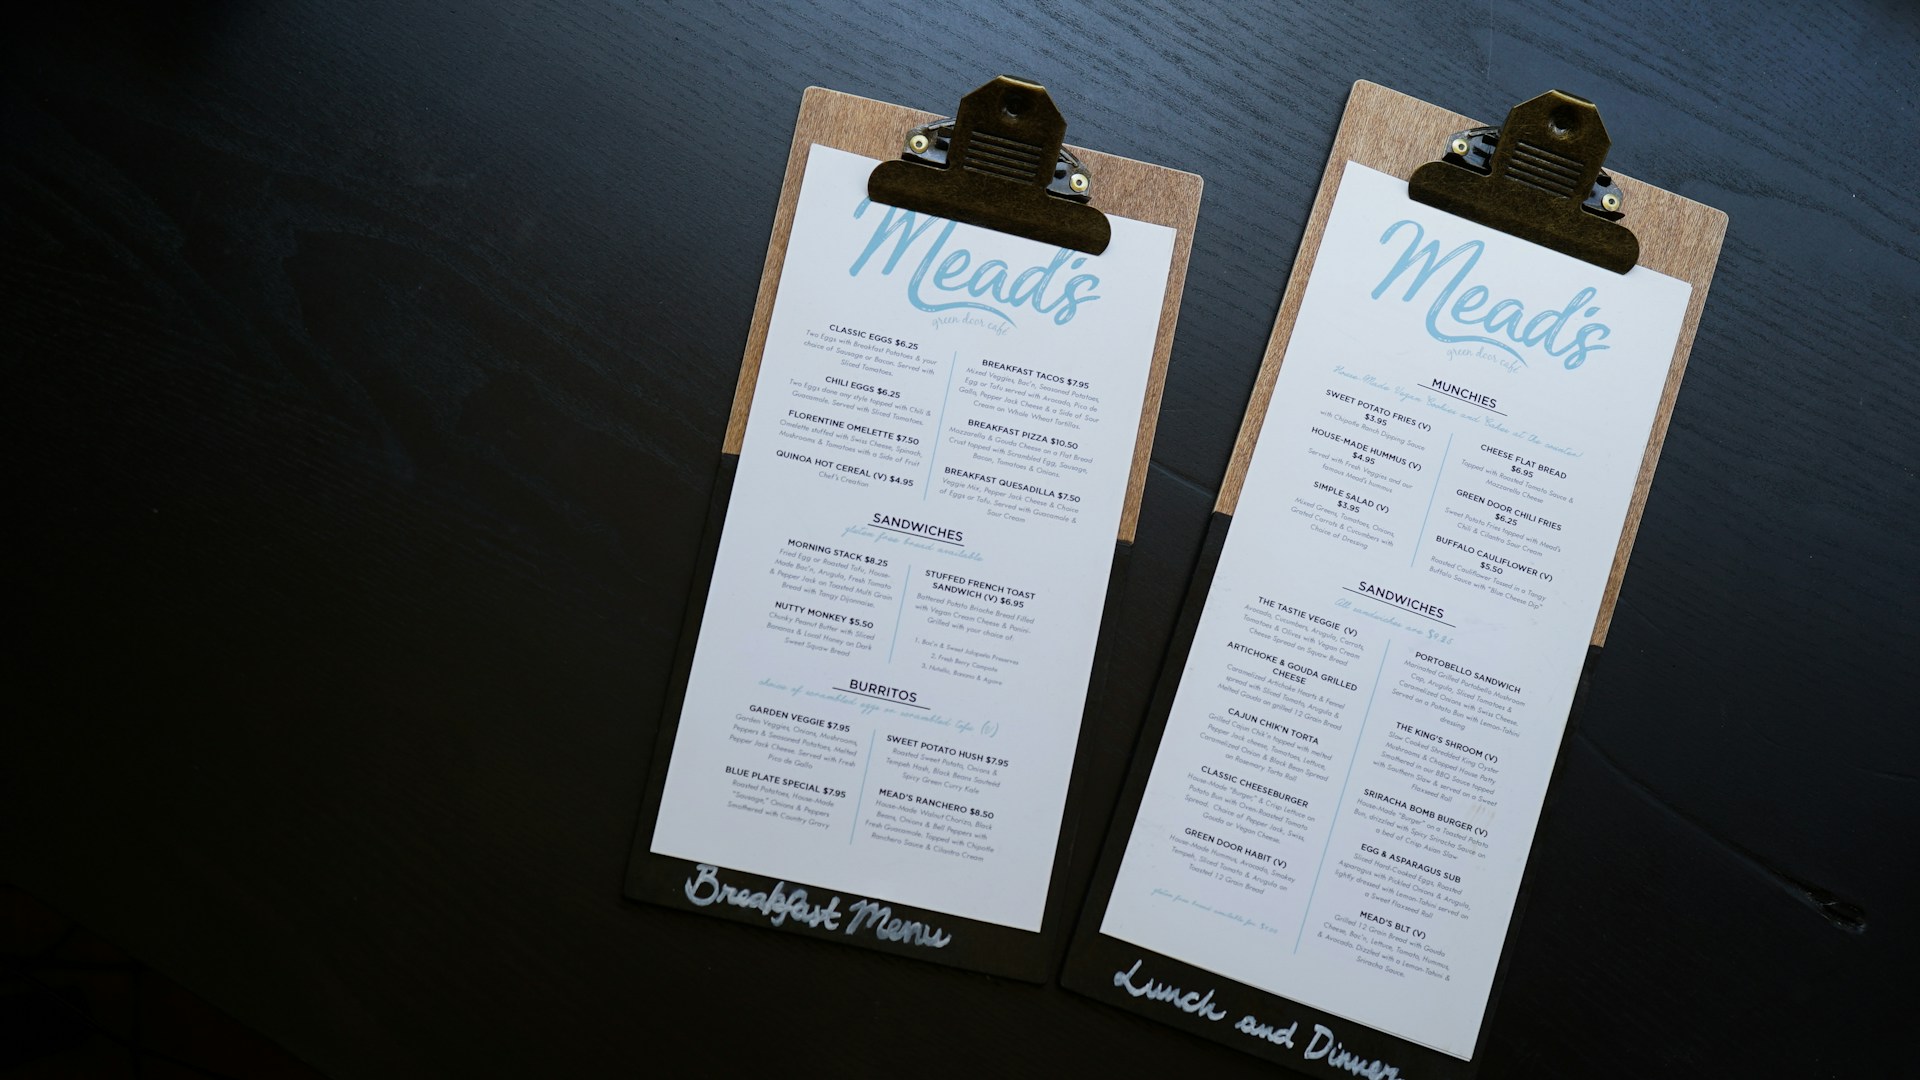 Mead's
green door café
CLASSIC EGGS $6.25
Two Eggs with Breakfast Potatoes & your
choice of Sausage or Bacon. Served with
Sliced Tomatoes.
CHILI EGGS $6.25
Two Eggs done any style topped with Chili &
Guacamole. Served with Sliced Tomatoes.
FLORENTINE OMELETTE $7.50
Omelette stuffed with Swiss Cheese, Spinach,
Mushrooms & Tomatoes with a Side of Fruit
QUINOA HOT CEREAL (V) $4.95
Chef's Creation
BREAKFAST TACOS $7.95
Mixed Veggies, Bac'n, Seasoned Potatoes,
Egg or Tofu served with Avocado, Pico de
Gallo, Pepper Jack Cheese & a Side of Sour
Cream on Whole Wheat Tortillas.
BREAKFAST PIZZA $10.50
Mozzarella & Gouda Cheese on a Flat Bread
Crust topped with Scrambled Egg, Sausage,
Bacon, Tomatoes & Onions
BREAKFAST QUESADILLA $7.50
Veggie Mix, Pepper Jack Cheese & Choice
of Eggs or Tofu. Served with Guacamole &
Sour Cream
SANDWICHES
gluten free bread available
MORNING STACK $8.25
Fried Egg or Roasted Tofu, House-
Made Bac'n, Arugula, Fresh Tomato
& Pepper Jack on Toasted Multi Grain
Bread with Tangy Dijonnaise.
NUTTY MONKEY $5.50
Chunky Peanut Butter with Sliced
Bananas & Local Honey on Dark
Sweet Squaw Bread
STUFFED FRENCH TOAST
SANDWICH (V) $6.95
Battered Potato Brioche Bread Filled
with Vegan Cream Cheese & Panini-
Grilled with your choice of:
1. Bac'n & Sweet Jalapeño Preserves
2. Fresh Berry Compote
3. Nutella, Banana & Agave
BURRITOS
choice of scrambled eggs or scrambled tofu (V)
GARDEN VEGGIE $7.95
Garden Veggies, Onions, Mushrooms,
Peppers & Seasoned Potatoes, Melted
Pepper Jack Cheese. Served with Fresh
Pico de Gallo
BLUE PLATE SPECIAL $7.95
Roasted Potatoes, House-Made
"Sausage," Onions & Peppers
Smothered with Country Gravy
SWEET POTATO HUSH $7.95
Roasted Sweet Potato, Onions &
Tempeh Hash, Black Beans Sautéed
Spicy Green Curry Kale
MEAD'S RANCHERO $8.50
House-Made Walnut Chorizo, Black
Beans, Onions & Bell Peppers with
Fresh Guacamole. Topped with Chipotle
Ranchero Sauce & Cilantro Cream
Breakfast Menu
Mead's
green door café
MUNCHIES
House Made Vegan Cookies and Cakes at the counter!
SWEET POTATO FRIES (V)
$3.95
with Chipotle Ranch Dipping Sauce
HOUSE-MADE HUMMUS (V)
$4.95
Served with Fresh Veggies and our
famous Mead's hummus
SIMPLE SALAD (V)
$3.95
Mixed Greens, Tomatoes, Onions,
Grated Carrots & Cucumbers with
Choice of Dressing
CHEESE FLAT BREAD
$6.95
Topped with Roasted Tomato Sauce &
Mozzarella Cheese
GREEN DOOR CHILI FRIES
$6.25
Sweet Potato Fries topped with Mead's
Chili & Cilantro Sour Cream
BUFFALO CAULIFLOWER (V)
$5.50
Roasted Cauliflower Tossed in a Tangy
Buffalo Sauce with "Blue Cheese Dip"
SANDWICHES
All sandwiches are $8.25
THE TASTIE VEGGIE (V)
Avocado, Cucumbers, Arugula, Carrots,
Tomatoes & Olives with Vegan Cream
Cheese Spread on Squaw Bread
ARTICHOKE & GOUDA GRILLED
CHEESE
Caramelized Artichoke Hearts & Fennel
spread with Sliced Tomato, Arugula &
Melted Gouda on grilled 12 Grain Bread
CAJUN CHIK'N TORTA
Grilled Cajun Chik'n topped with melted
Pepper Jack cheese, Tomatoes, Lettuce,
Caramelized Onion & Black Bean Spread
on Rosemary Torta Roll
CLASSIC CHEESEBURGER
House-Made "Burger," & Crisp Lettuce on
Potato Bun with Oven-Roasted Tomato
Spread, Choice of Pepper Jack, Swiss,
Gouda or Vegan Cheese.
GREEN DOOR HABIT (V)
House-Made Hummus, Avocado, Smokey
Tempeh, Sliced Tomato & Arugula on
Toasted 12 Grain Bread
gluten free bread available for
PORTOBELLO SANDWICH
Marinated Grilled Portobello Mushroom
Cap, Arugula, Sliced Tomatoes &
Caramelized Onions with Swiss Cheese.
Served on a Potato Bun with Lemon-Tahini
dressing
THE KING'S SHROOM (V)
Slow Cooked Shredded King Oyster
Mushrooms & Chopped House Patty
Smothered in our BBQ Sauce topped
with Southern Slaw & served on a Sweet
Flaxseed Roll
SRIRACHA BOMB BURGER (V)
House-Made "Burger" on a Toasted Potato
Bun, drizzled with Spicy Sriracha Sauce on
a bed of Crisp Asian Slaw
EGG & ASPARAGUS SUB
Sliced Hard-Cooked Eggs, Roasted
Asparagus with Pickled Onions & Arugula,
lightly dressed with Lemon-Tahini served on
a Sweet Flaxseed Roll
MEAD'S BLT (V)
Grilled 12 Grain Bread with Gouda
Cheese, Bac'n, Lettuce, Tomato, Hummus,
& Avocado. Dizzled with a Lemon-Tahini &
Sriracha Sauce.
Lunch and Dinner